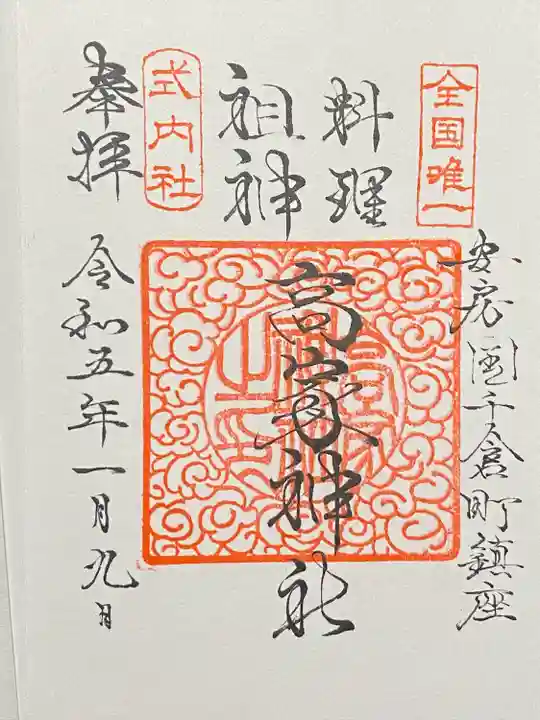 全国唯一
安房国千倉町鎮座
料理
祖神
高家神社
式内社
奉拝
令和五年一月九日